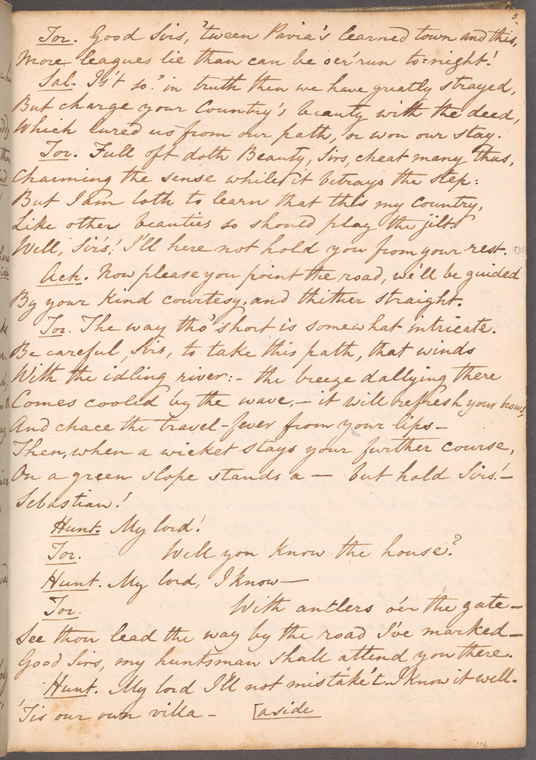 5.
Tor. Good Sirs, 'tween Pavia's learned town and this,
More leagues lie than can be o'er run to-night!
Sal. Is't so? in truth then we have greatly strayed,
But charge your Country's beauty with the deed,
Which lured us from our path, or won our stay.
Tor. Full oft doth Beauty, Sirs, cheat many thus,
Charming the sense while it betrays the step:
But I am loth to learn that this my Country,
Like other beauties so should play the jilt
Well, Sirs! I'll here not hold you from your rest.
Ach. Now please you point the road, we'll be guided
By your kind courtesy, and thither straight.
Tor. The way tho' short is somewhat intricate.
Be careful, Sirs, to take this path, that winds
With the idling river:- the breeze dallying there
Comes cooled by the wave,- it will refresh your brows,
And chace the travel-fever from your lips-
Then, when a wicket stays your further course,
On a green slope stands a - but hold Sirs!-
Sebastian!
Hunt. My lord!
Tor. Well you know the house?
Hunt. My lord, I know-
Tor. With antlers o'er the gate-
See thou lead the way by the road I've marked-
Good Sirs, my huntsman shall attend you there.
Hunt. My lord I'll not mistake't. I know it well-
'Tis our own villa - [aside